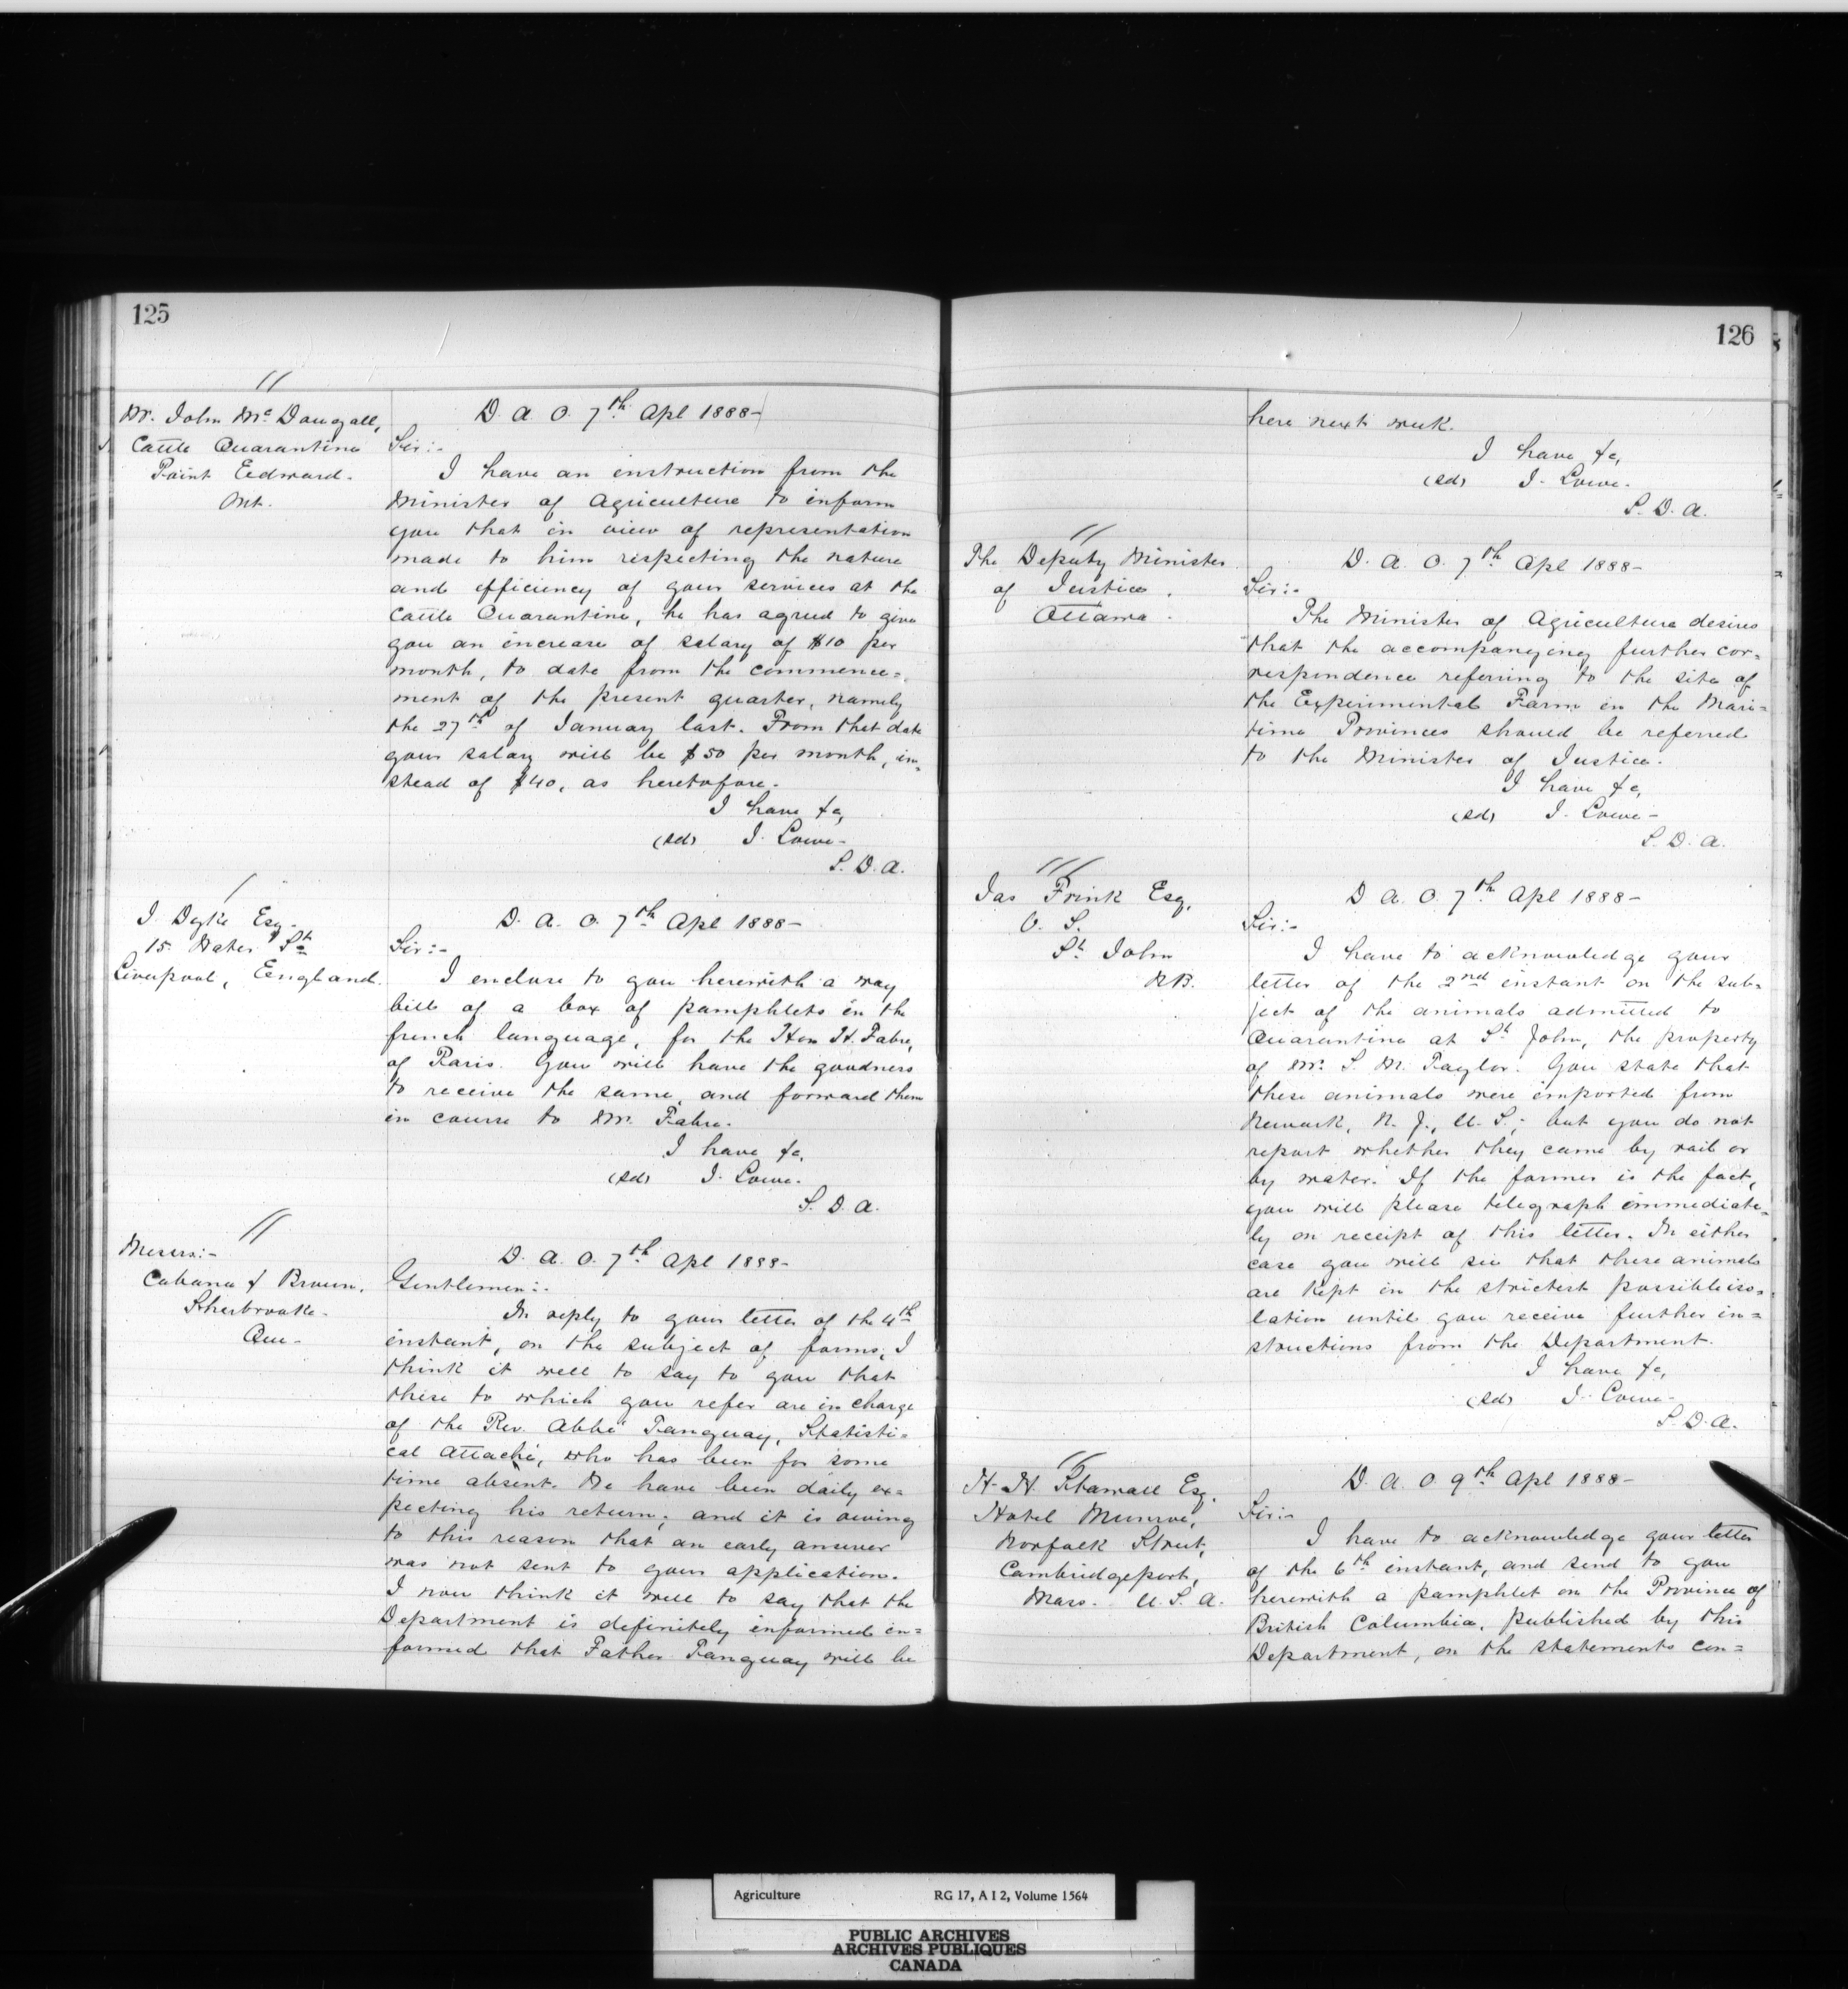 125
Mr. John McDougall,
Cattle Quarantine
Point Edward.
Ont.
D. A. O. 7th Apl 1888-
Sir:-
I have an instruction from the
Minister of Agriculture to inform
you that in view of representation
made to him respecting the nature
and efficiency of your services at the
Cattle Quarantine, he has agreed to give
you an increase of salary of $10 per
month, to date from the commence=
ment of the present quarter, namely
the 27th of January last. From that date
your salary will be $50 per month, in=
stead of $40, as heretofore.
I have &c,
(sd) J. Lowe-
S. D. A.
J. Dyke Esq.
15. Water St
Liverpool, England.
D. A. O. 7th Apl 1888-
Sir:-
I enclose to you herewith a way
bill of a box of pamphlets in the
french language, for the Hon H. Fabre,
of Paris. You will have the goodness
to receive the same, and forward them
in course to Mr. Fabre.
I have &c,
(sd) J. Lowe.
S. D. A.
Messrs:-
Cabana & Brown.
Sherbrooke.
Que-
D. A. O. 7th Apl 1888-
Gentlemen:-
In reply to your letter of the 4th
instant, on the subject of forms, I
think it well to say to you that
these to which you refer are in charge
of the Rev. Abbé Tanguay, Statisti=
cal Attaché, who has been for some
time absent. We have been daily ex=
pecting his return; and it is owing
to this reason that an early answer
was not sent to your application.
I now think it well to say that the
Department is definitely informed in=
formed that Father Tanguay will be
126
here next week.
I have &c,
(sd) J. Lowe.
S. D. A.
The Deputy Minister
of Justice.
Ottawa.
D. A. O. 7th Apl 1888-
Sir:-
The Minister of Agriculture desires
that the accompanying further cor=
respondence referring to the site of
the Experimental Farm in the Mari=
time Provinces should be referred
to the Minister of Justice.
I have &c,
(sd) J. Lowe-
S. D. A.
Jas Frink Esq.
V. S.
St John
N.B.
D. A. O. 7th Apl 1888-
Sir:-
I have to acknowledge your
letter of the 2nd instant on the sub=
ject of the animals admitted to
Quarantine at St John, the property
of Mr. S. M. Taylor. You state that
these animals were imported from
Newark, N. J., U. S.; but you do not
report whether they came by rail or
by water. If the former is the fact,
you will please telegraph immediate=
ly on receipt of this letter. In either
case you will see that these animals
are kept in the strictest possible iso=
lation until you receive further in=
structions from the Department.
I have &c,
(sd) J. Lowe-
S. D. A.
H. H. Esq.
Hotel Munroe,
Norfolk Street,
Cambridgeport,
Mass. U. S. A.
D. A. O. 9th Apl 1888-
Sir:-
I have to acknowledge your letter
of the 6th instant, and send to you
herewith a pamphlet on the Province of
British Columbia, published by this
Department, on the statements con=
Agriculture RG 17, A I 2, Volume 1564
PUBLIC ARCHIVES
ARCHIVES PUBLIQUES
CANADA